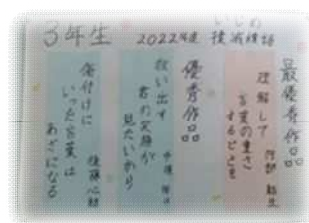 3年生 2022年度 いじめ撲滅標語
最優秀作品
理解して
言葉の重さ
することを
優秀作品
救い出す
君の笑顔が
見たいから
傷付けに
いった言葉は
あざになる